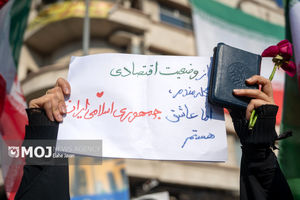 از وضعیت اقتصادی
گله مندم،
اما عاشق جمهوری اسلامی ایران
هستم
MOJ NEWS AGENCY